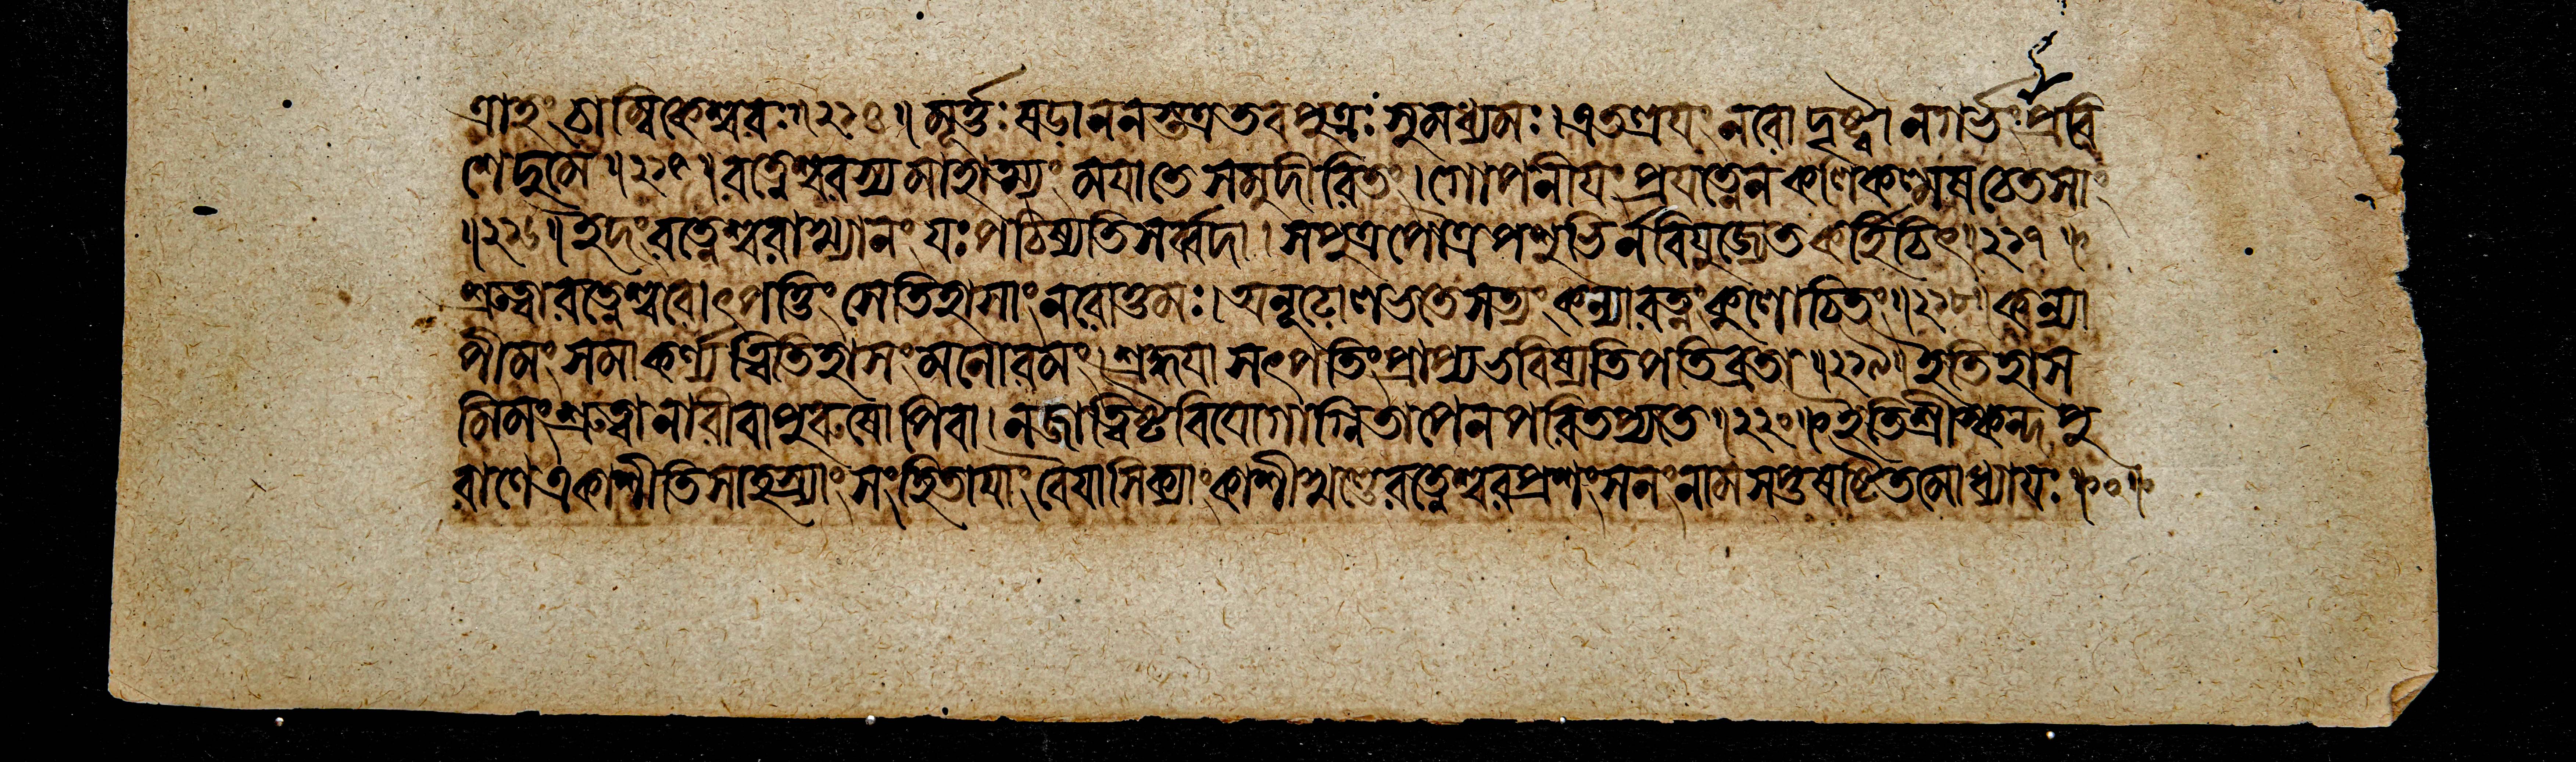 ত্রাহং চাম্বিকেশ্বরঃ॥২২৪॥মূর্ত্তঃষডাননস্তত্রতবপুত্রঃসুমধ্যমঃ।এতত্রয়ংনরোদৃষ্ট্বানগর্ভংপ্রবি
শেদুমে॥২২৫॥রত্নেশ্বরস্যমাহাত্ম্যংময়াতেসমুদীরিতং।গোপনীয়ংপ্রযত্নেনকলিকল্মষচেতসাং
॥২২৬॥ইদংরত্নেশ্বরাখ্যানংযঃপঠিষ্যতিসর্ব্বদা।সপুত্রপৌত্রপশুভির্নবিযুজ্যেতকর্হিচিৎ॥২২৭॥
শ্রুত্বারত্নেশ্বরোৎপত্তিংসেতিহাসাংনরোত্তমঃ।অনূঢোলভতেসত্যংকন্যারত্নংকুলোচিতং॥২২৮॥কন্যা
পীমংসমাকর্ণ্যত্বিতিহাসংমনোরমং।শ্রদ্ধয়াসৎপতিংপ্রাপ্যভবিষ্যতিপতিব্রতা॥২২৯॥ইতিহাস
মিমংশ্রুত্বানারীবাপুরুষোপিবা।নজাত্বিষ্টবিয়োগাগ্নিতাপেনপরিতপ্যতে॥২৩০॥ইতিশ্রীস্কন্দপু
রাণেএকাশীতিসাহস্র্যাংসংহিতায়াংবৈয়াসিক্যাংকাশীখণ্ডেরত্নেশ্বরপ্রশংসনংনামসপ্তষষ্টিতমোধ্যায়ঃ॥০০॥